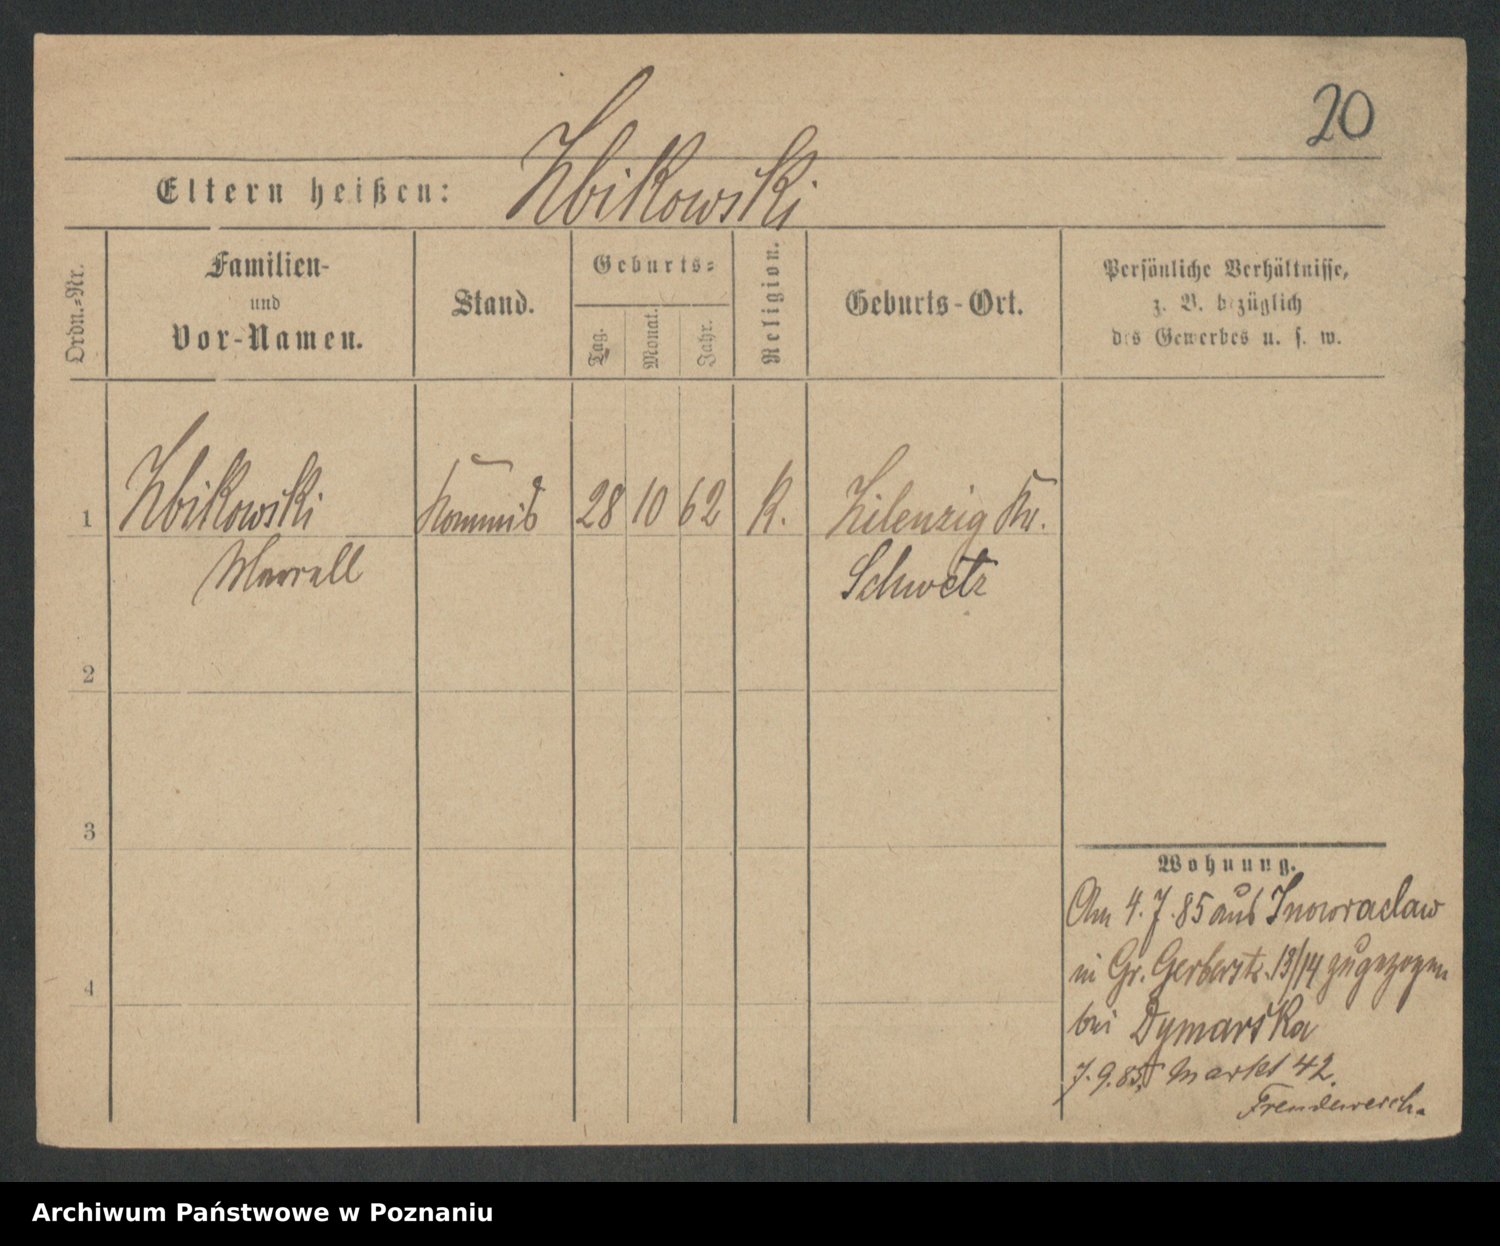 20
Zbikowski
Eltern heißen:
Ordn.-Nr.
Familien-
und
Vor-Namen.
Stand.
Geburts-
Tag.
Monat.
Jahr.
Religion.
Geburts-Ort.
Persönliche Verhältnisse,
z. B. bezüglich
des Gewerbes u. s. w.
1 Zbikowski Kommis 28 10 62 K. Zilenzig Kr.
Schwetz
2
3
4
Wohnung.
Am 4.7.85 aus Inowraclaw
in Gr. Gerberstr. 13/14 zugezogen
bei Dymarska
7.9.85 Markt 42.
Archiwum Państwowe w Poznaniu